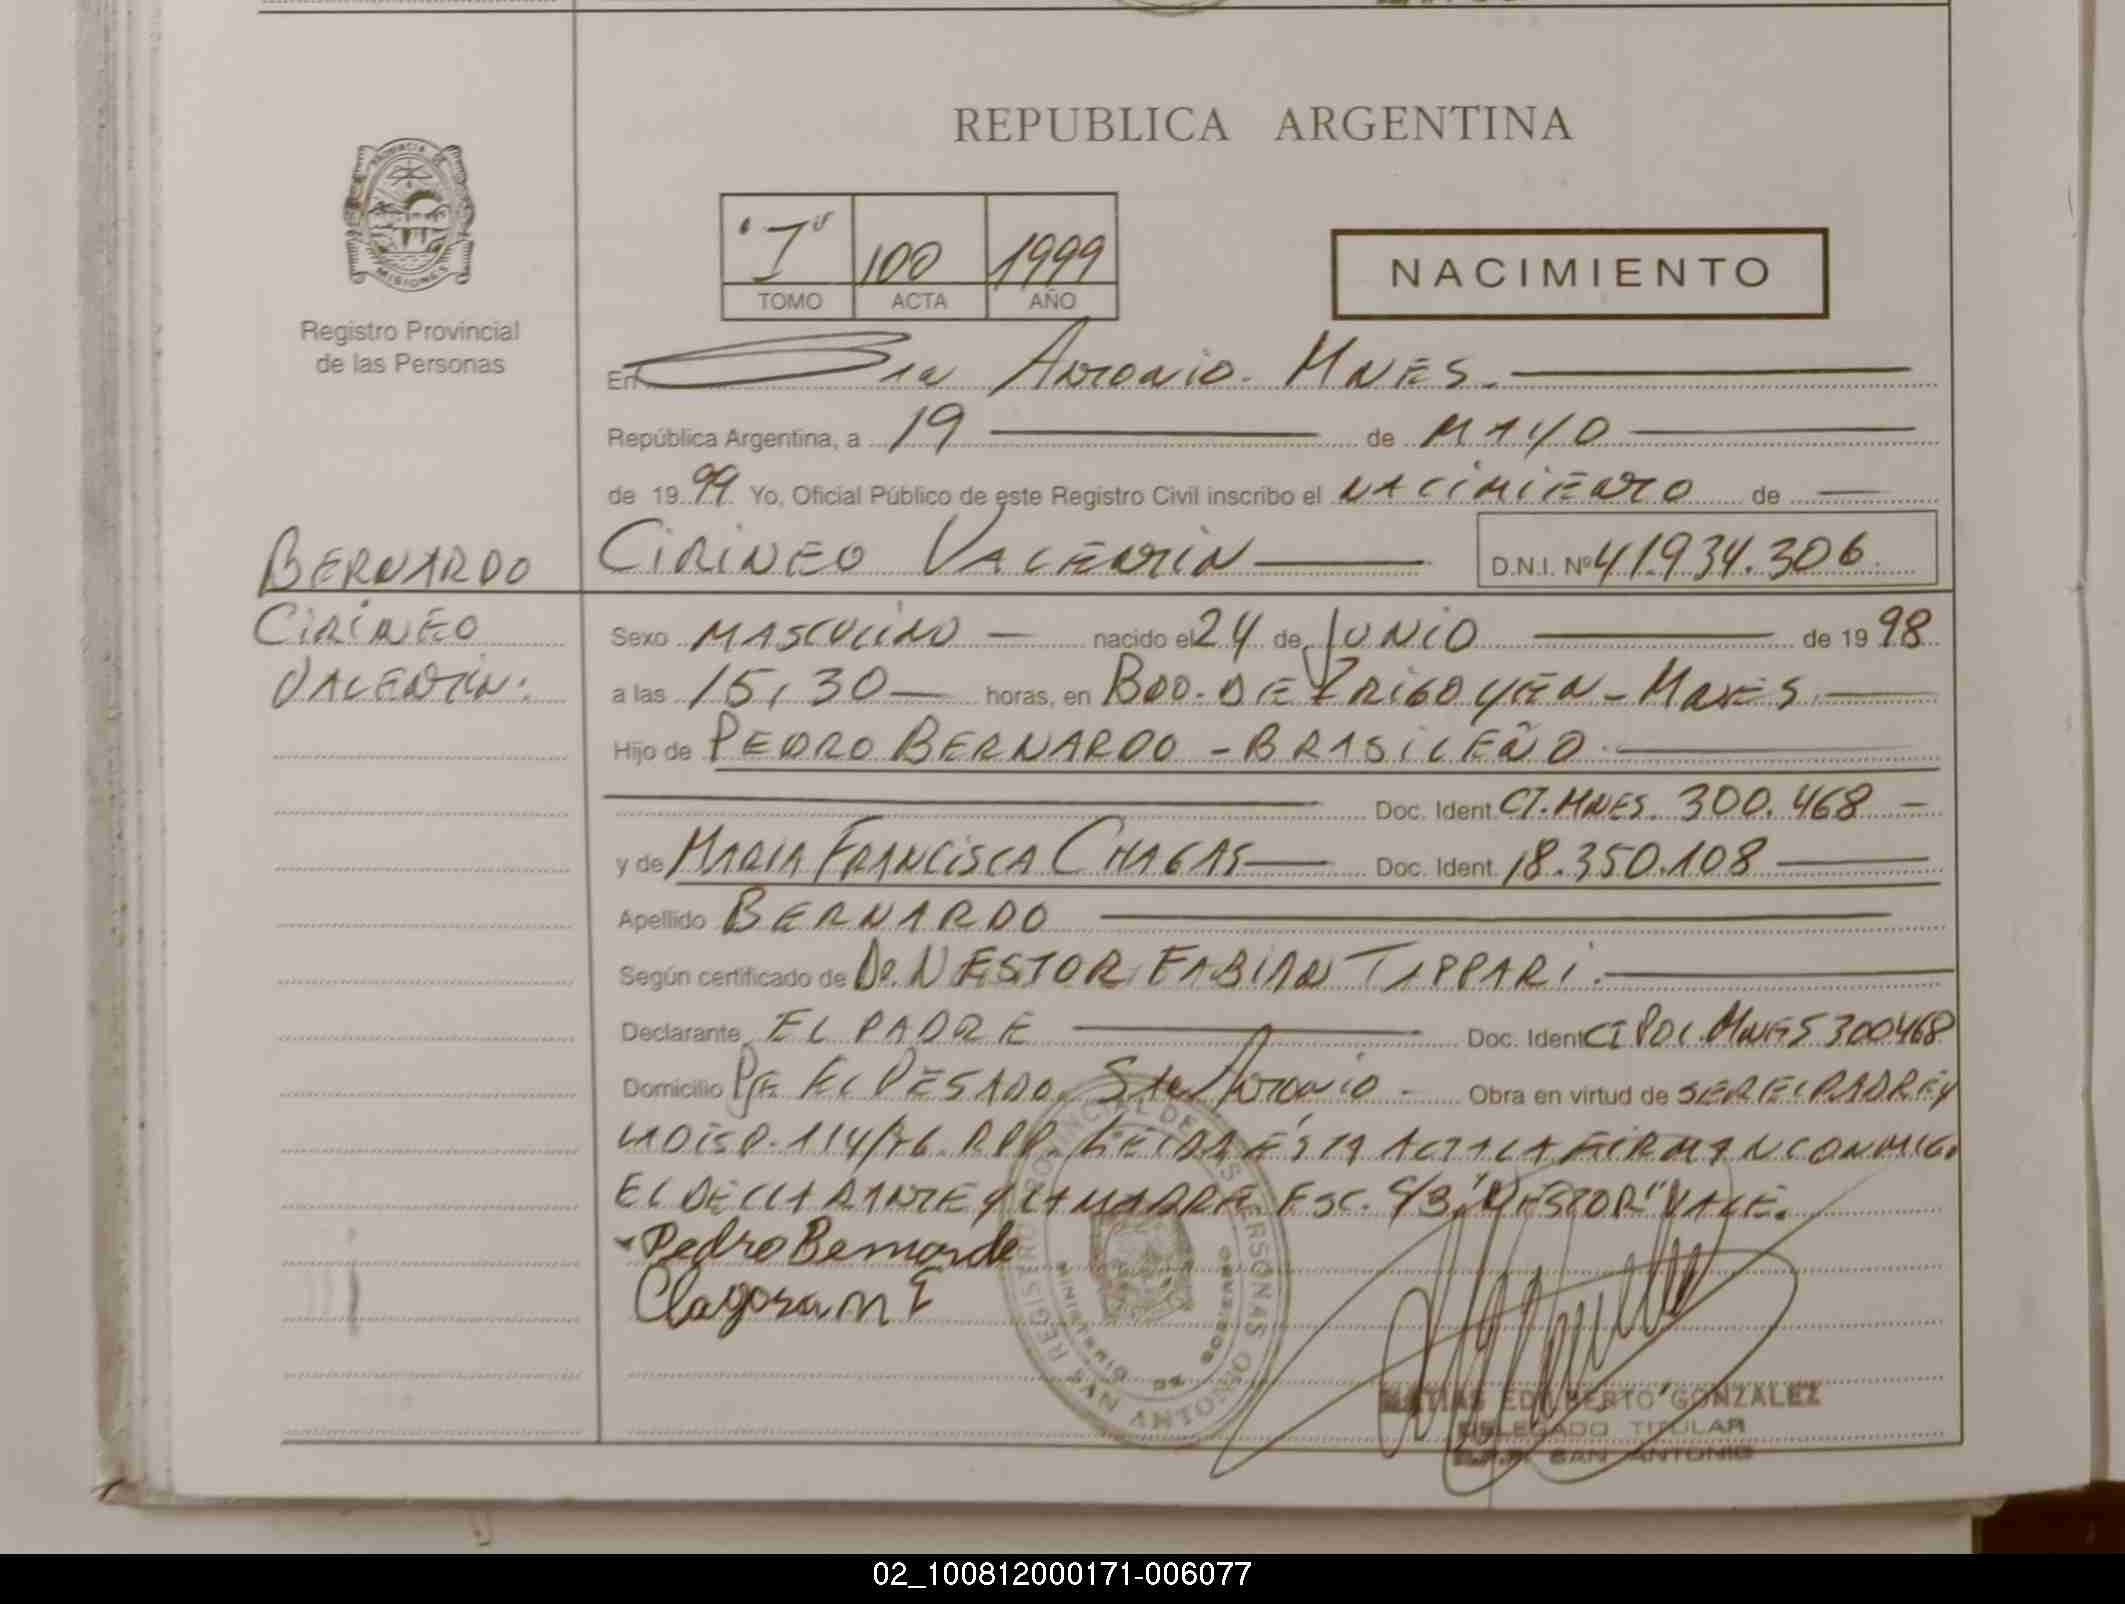 REPUBLICA ARGENTINA
PROVINCIA DE
MISIONES
Registro Provincial
de las Personas
"I" 100 1999
TOMO ACTA AÑO
NACIMIENTO
En San Antonio. MNES.
República Argentina, a 19 de MAYO
de 1999 Yo, Oficial Público de este Registro Civil inscribo el NACIMIENTO de
BERNARDO
CIRINEO
VALENTIN.
CIRINEO VALENTIN D.N.I. Nº 41.934.306
Sexo MASCULINO nacido el 24 de JUNIO de 1998
a las 15,30 horas, en BDO. DE IRIGOYEN - MNES
Hijo de PEDRO BERNARDO - BRASILEÑO
Doc. Ident. CI. MNES. 300.468
y de MARIA FRANCISCA CHAGAS Doc. Ident. 18.350.108
Apellido BERNARDO
Según certificado de Dr. NESTOR FABIAN TAPPARI.
Declarante EL PADRE Doc. Ident CI POL. MNES 300468
Domicilio Pje EL PESADO. San Antonio - Obra en virtud de SER EL PADRE Y
LA DISP. 114/76. RPP. LEIDA ESTA ACTA LA FIRMAN CONMIGO
EL DECLARANTE Y LA MADRE ESC. S/B. "NESTOR" VALE.
Pedro Bernardo
REGISTRO PROVINCIAL DE LAS PERSONAS
SAN ANTONIO
MATIAS EDILBERTO GONZALEZ
DELEGADO TITULAR
R.P.P. SAN ANTONIO
02_100812000171-006077